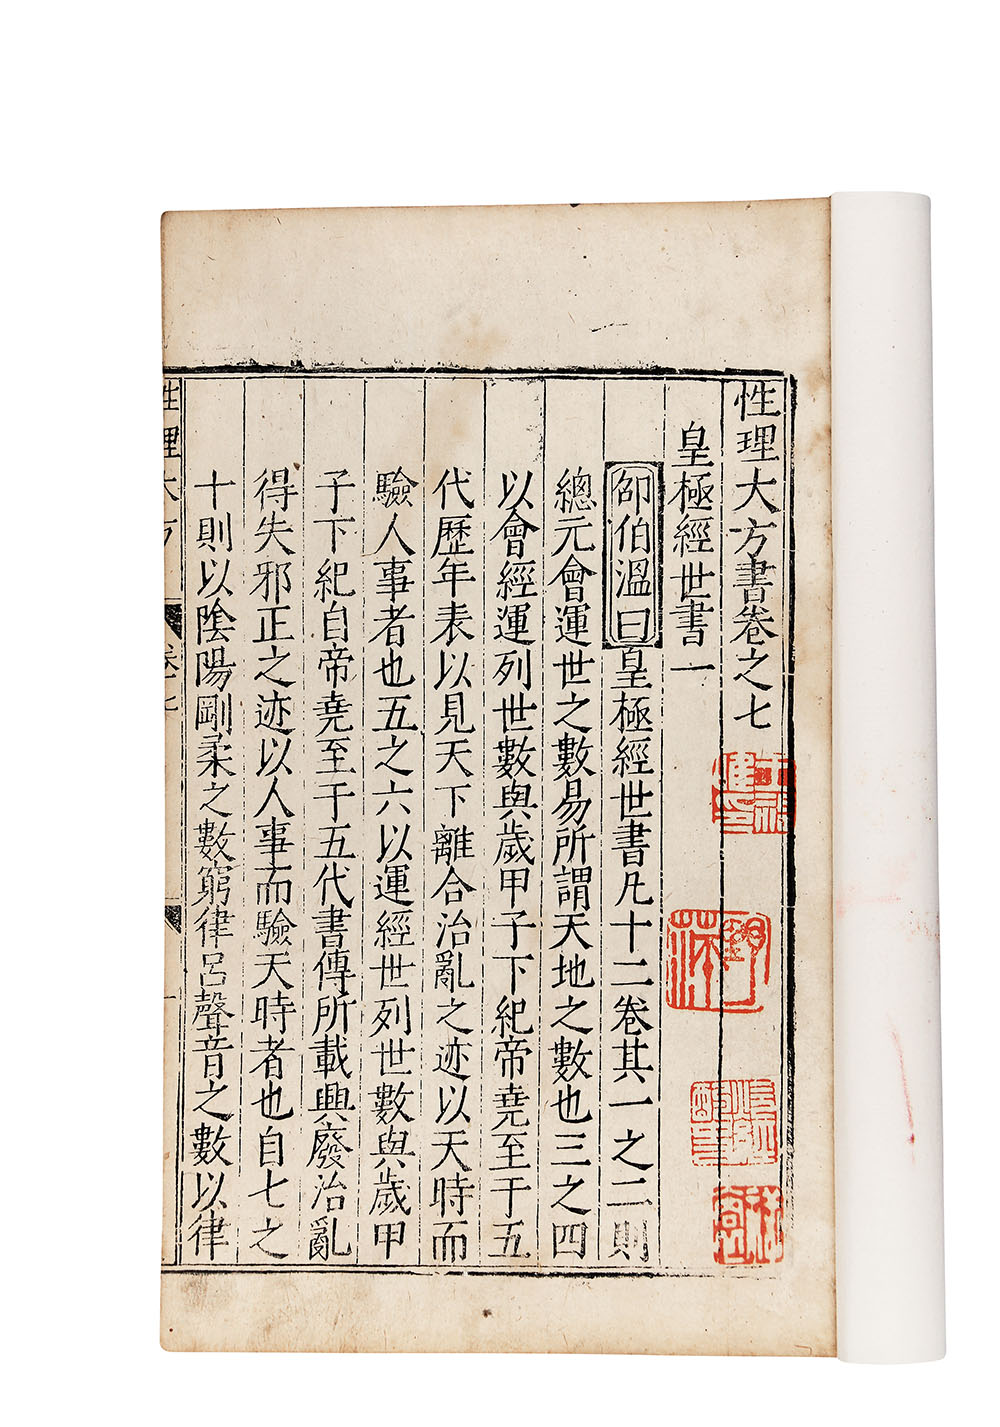 性理大方書卷之七
皇極經世書一
邵伯溫曰皇極經世書凡十二卷其一之二則
總元會運世之數易所謂天地之數也三之四
以會經運列世數與歲甲子下紀帝堯至于五
代歷年表以見天下離合治亂之迹以天時而
驗人事者也五之六以運經世列世數與歲甲
子下紀自帝堯至于五代書傳所載興廢治亂
得失邪正之迹以人事而驗天時者也自七之
十則以陰陽剛柔之數窮律呂聲音之數以律
性理大方
卷七
一